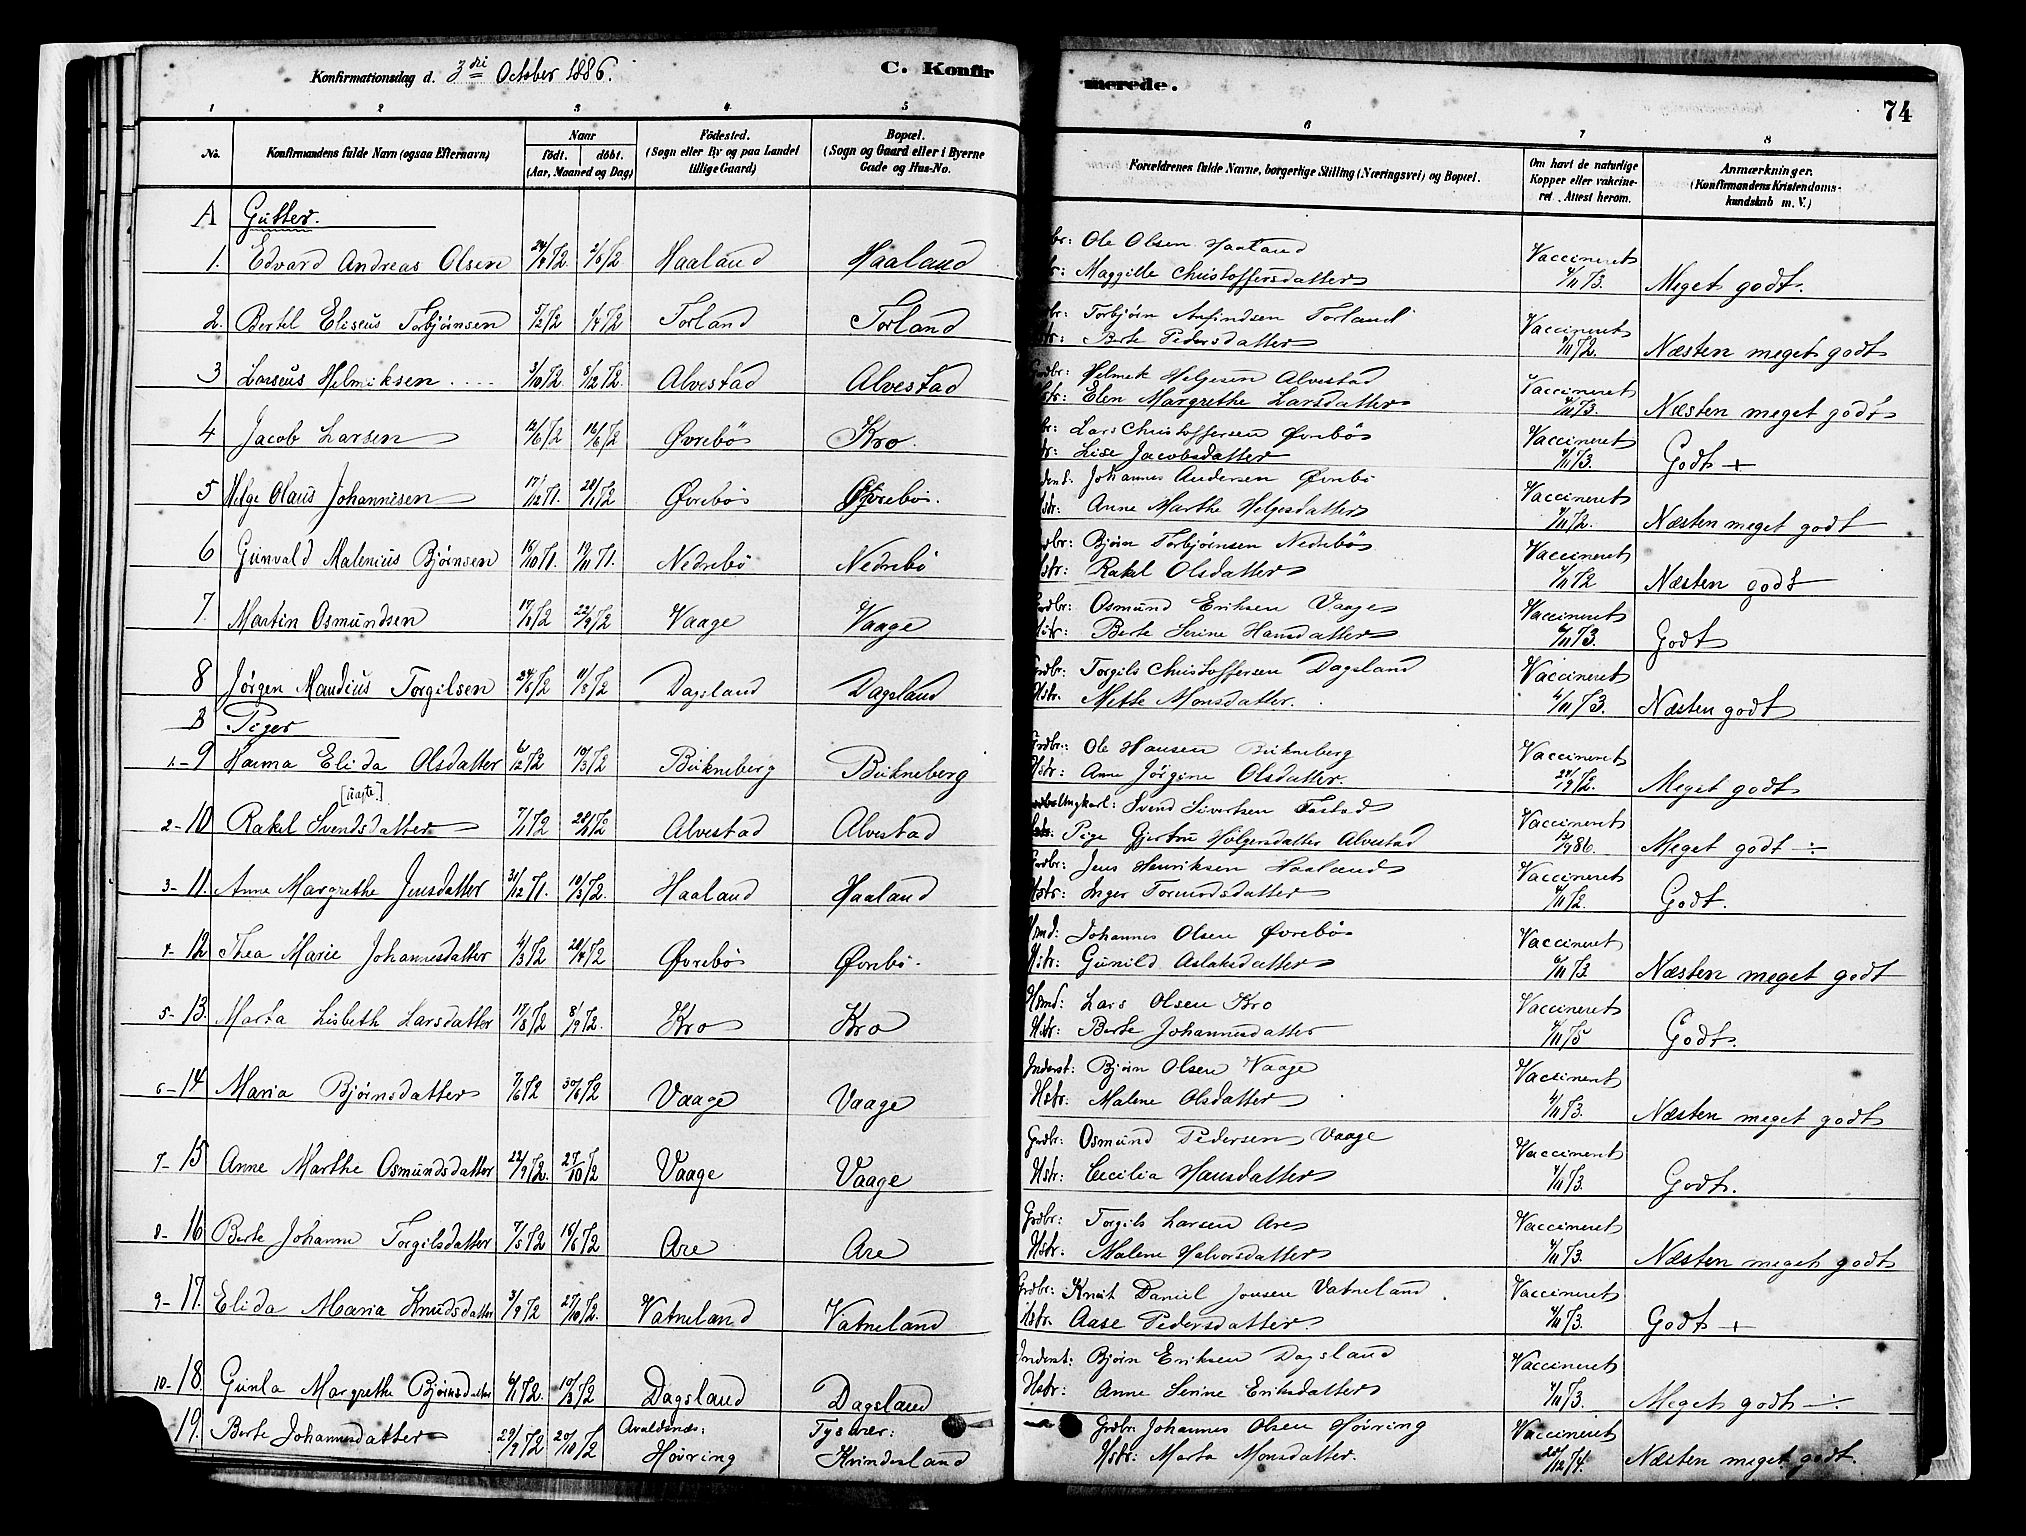 Konfirmationsdag d. 3die October 1886.
C. Konfir
merede.
74
1 2 3 4 5 6 7 8
No. Konfirmandens fulde Navn (ogsaa Efternavn) Naar födt. döbt. (Aar, Maaned og Dag) Födested. (Sogn eller By og paa Landet tillige Gaard) Bopæl. (Sogn og Gaard eller i Byerne Gade og Hus-No. Forældrenes fulde Navne, borgerlige Stilling (Næringsvei) og Bopæl. Om havt de naturlige Kopper eller vakcineret. Attest herom. Anmærkninger. (Konfirmandens Kristendomskundskab m.V.)
A Gutter.
1. Edvard Andreas Olsen 2/6 72 Haaland Haaland Ole Olsen Haaland Vaccineret
Maggille Christoffersdatter 4/11 73. Meget godt.
2. Bertel Eliseus Torbjørnsen 5/2 72 1/4 72 Torland Torland Torbjørn Torland Vaccineret
Berte Pedersdatter 72. Næsten meget godt
3 Larseus Helmiksen .... 3/10 72. 8/12 72. Alvestad Alvestad Helmik Helgesen Alvestad Vaccineret
Elen Margrethe Larsdatter 4/11 73. Næsten meget godt
4 Jacob Larsen 12/6 72 16/6 72 Øvrebö Kro. Lars Christoffersen Øvrebö Vaccineret
Lise Jacobsdatter 4/11 73. Godt +
5 Helge Olaus Johannesen 17/12 71. 28/1 72 Øvrebö Øvrebö. Johannes Andersen Øvrebö Vaccineret
Anne Marthe Helgesdatter 72. Næsten meget godt
6 Gunvald Malenius Bjørnsen 16/10 71. 19/11 71. Nedrebö Nedrebö Bjørn Torbjørnsen Nedrebö Vaccineret
Hstr: Rakel Olsdatter 4/11 72 Næsten godt
7. Martin Osmundsen 22/9 72 Vaage Vaage Osmund Eriksen Vaage Vaccineret
Berte Serine Hansdatter 6/11 73. Godt
8 Jørgen Maudius Torgilsen Dagsland Dagsland Torgils Christoffersen Dagsland Vaccineret
Hstr. Mette Monsdatter. 4/11 73. Næsten godt
B Piger
1-9 Hanna Elida Olsdatter 6/12 72 10/3 72 Bukneberg Bukneberg Grdbr: Ole Hansen Bukneberg Vaccineret
Hstr: Anne Jørgine Olsdatter. 72. Meget godt
[uægte.]
2-10 Rakel Svendsdatter 7/1 72 Alvestad Alvestad Ungkarl: Svend Sivertsen Tastad Vaccineret
Pige Gjertru Holgersdatter Alvestad 86. Meget godt ÷
3-11. Anne Margrethe Jensdatter 31/12 71. 10/3 72. Haaland Haaland Grdbr: Jens Henriksen Haaland Vaccineret
Hstr: Inger Tormodsdatter 4/11 72. Godt.
4-12 Thea Marie Johannesdatter 4/3 72 28/4 72 Øvrebö Øvrebö. Hsmd: Johannes Olsen Øvrebö Vaccineret
Hstr: Gunild Aslaksdatter 6/11 73. Næsten meget godt
5-13. Marta Lisbeth Larsdatter 17/8 72 8/9 72. Kro Kro Hsmd: Lars Olsen Kro Vaccineret
Hstr: Berte Johannesdatter 4/11 75 Godt.
6-14 Maria Bjørnsdatter 7/6 72 30/6 72 Vaage Vaage Inderst: Bjørn Olsen Vaage Vaccineret
Hstr: Malene Olsdatter 4/11 73. Næsten meget godt
7-15 Anne Marthe Osmundsdatter 22/9 72. 27/10 72 Vaage Vaage Grdbr: Osmund Pedersen Vaage Vaccineret
Hstr: Cecilia Hansdatter 4/11 73. Godt.
8-16 Berte Johanne Torgilsdatter 7/5 72 16/6 72 Are Are Grdbr: Torgils Larsen Are Vaccineret
Hstr: Malene Halvorsdatter 4/11 73. Næsten meget godt
9-17. Elida Maria Knudsdatter 3/9 72 27/10 72. Vatneland Vatneland Grdbr: Knut Daniel Jonsen Vatneland. Vaccineret
Hstr. Aase Pedersdatter. 4/11 73. Godt +
10-18. Gunla Margrethe Bjørnsdatter 6/1 72. 10/3 72 Dagsland Dagsland Inderst: Bjørn Eriksen Dagsland Vaccineret
Hstr: Anne Serine Eriksdatter 4/11 73. Meget godt ÷
19. Berte Johannesdatter 29/9 72 20/10 72 Avaldsnes: Tysvær: Grdbr: Johannes Olsen Høvring Vaccineret
Høvring Kvindesland Hstr: Marta Monsdatter. 28/12 74. Næsten meget godt.